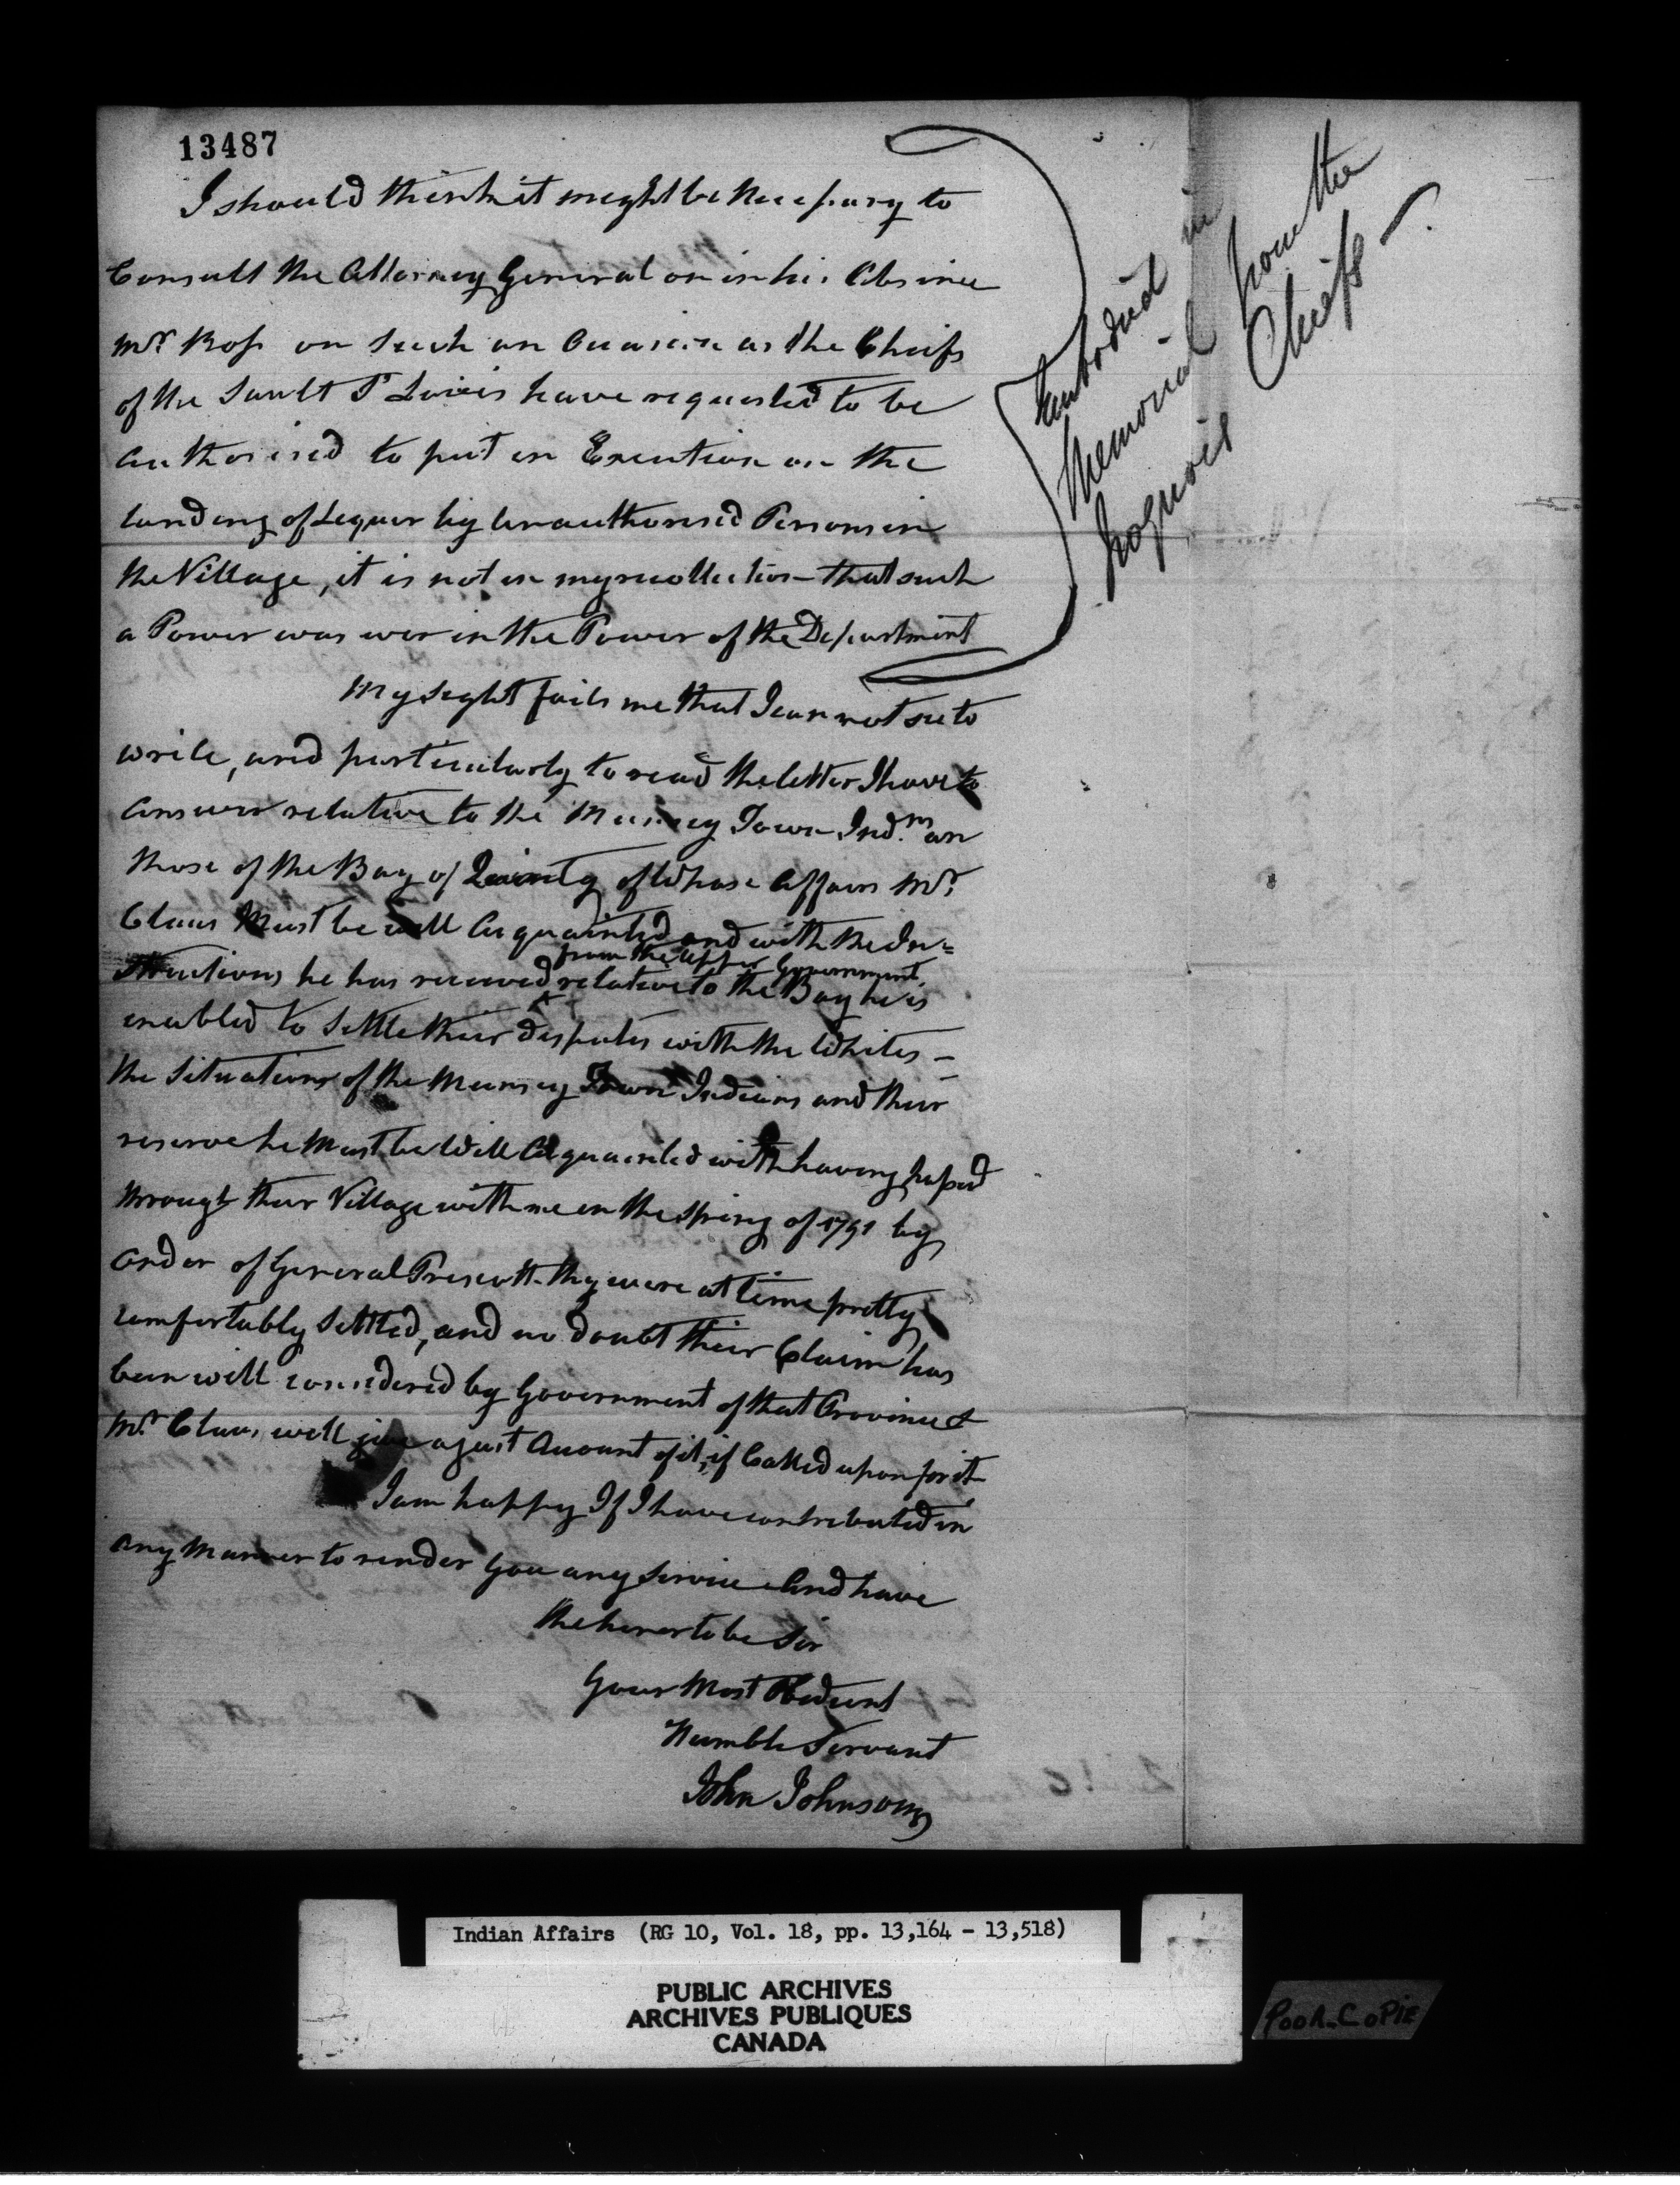 13487
I should think it might be Necessary to
Consult the Attorney General or in his Absince
Mr. Ross on such an Occasion as the Chiefs
of the Sault St Louis have requested to be
authorised to put in Execution on the
landing of Liquor by unauthorised Persons in
the Village, it is not in my recollection that such
a Power was ever in the Power of the Department
My sight fails me that I can not see to
write, and particularly to read the letter I have to
answer relative to the Munsey Town Inds. or
those of the Bay of Quinty of Whose Affairs Mr.
Claus Must be well acquainted and with the In=
from the Upper Government
structions he has received relative to the Bay he is
enabled to Settle their disputes with the Whites -
the Situations of the Munsey Town Indians and their
reserve he Must be Well Acquainted with having passed
through their Village with me in the Spring of 1791 by
order of General Prescott. they were at time pretty
comfortably Settled, and no doubt their Claim has
been well considered by Government of that Province &
Mr. Claus, will give a just Account of it, if Called upon for it
I am happy If I have contributed in
any Manner to render you any Service And have
the honor to be Sir
Your Most Obedient
Humble Servant
John Johnson
Embodied in
Memorial from the
Iroquois Chiefs -
Indian Affairs (RG 10, Vol. 18, pp. 13,164 - 13,518)
PUBLIC ARCHIVES
ARCHIVES PUBLIQUES
CANADA
POOR COPIE